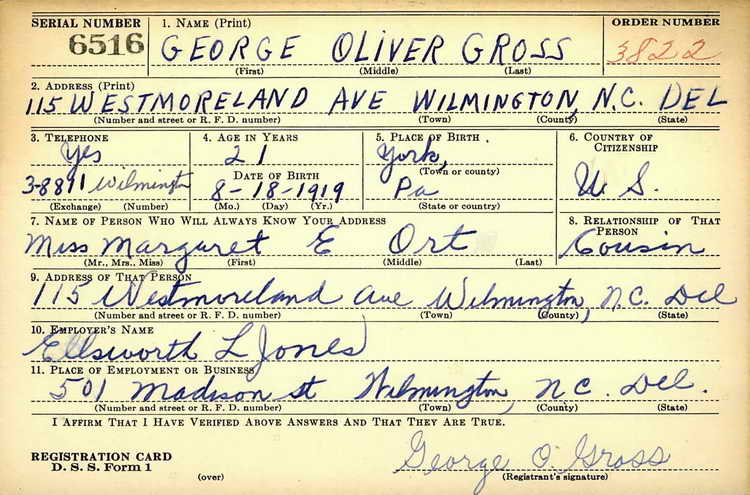 SERIAL NUMBER 1. NAME (Print) ORDER NUMBER
6516 GEORGE OLIVER GROSS 3822
(First) (Middle) (Last)
2. ADDRESS (Print)
115 WESTMORELAND AVE WILMINGTON, N.C. DEL
(Number and street or R. F. D. number) (Town) (County) (State)
3. TELEPHONE 4. AGE IN YEARS 5. PLACE OF BIRTH 6. COUNTRY OF CITIZENSHIP
Yes 21 York,
DATE OF BIRTH (Town or county)
3-8891 Wilmington 8-18-1919 Pa U S.
(Exchange) (Number) (Mo.) (Day) (Yr.) (State or country)
7. NAME OF PERSON WHO WILL ALWAYS KNOW YOUR ADDRESS 8. RELATIONSHIP OF THAT PERSON
Miss Margaret E Ort Cousin
(Mr., Mrs., Miss) (First) (Middle) (Last)
9. ADDRESS OF THAT PERSON
115 Westmoreland ave Wilmington, N.C. Del
(Number and street or R. F. D. number) (Town) (County) (State)
10. EMPLOYER'S NAME
Ellsworth L Jones
11. PLACE OF EMPLOYMENT OR BUSINESS
501 Madison st Wilmington, N C. Del.
(Number and street or R. F. D. number) (Town) (County) (State)
I AFFIRM THAT I HAVE VERIFIED ABOVE ANSWERS AND THAT THEY ARE TRUE.
REGISTRATION CARD George O. Gross
D. S. S. Form 1 (over) (Registrant's signature)